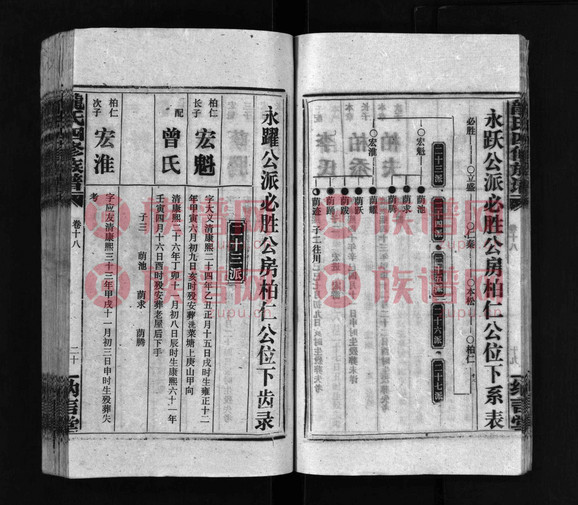 永跃公派必胜公房柏仁公位下系表
必胜 ○立盛 ○仁秦 ○本松 ○柏仁
二十三派
二十六派
二十七派
○宏魁
○荫池
○荫求
○荫腾
○宏淮
○荫跃
○荫踢
○荫迹
永躍公派必胜公房柏仁公位下齿录
二十三派
柏仁
长子
宏魁
字大义清康熙二十四年乙丑正月十五日戌时生雍正十二
年甲寅六月初九日亥时殁安葬洗菜塘上庚山甲向
配
曾氏
清康熙二十六年丁卯十一月初八日辰时生康熙六十一年
壬寅四月十六日酉时殁安葬老屋后下手
子三 荫池 荫求 荫腾
柏仁
次子
宏淮
字应友清康熙三十三年甲戌十一月初三日申时生殁葬失
考
龍氏四修族譜
卷十八
二十
纳言堂
族谱网
zupu.cn